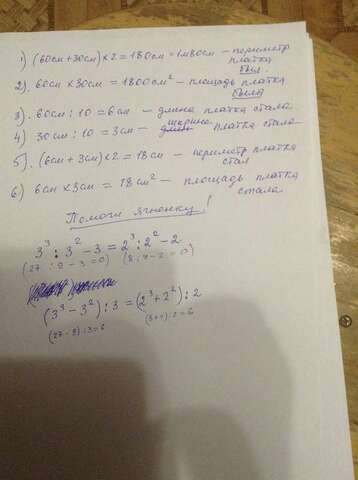 1) (60см+30см)×2=180см=1м80см - периметр
платка
был.
2). 60см×30см=1800см² - площадь платка
была
3). 60см:10=6см - длина платка стала
ширина
4) 30см:10=3см - длин платка стала
5). (6см+3см)×2=18см - периметр платка
стал
6) 6см×3см=18см² - площадь платка
стала
Помоги ягненку!
3³:3²-3=2³:2²-2
(27:9-3=0) (8:4-2=0)
(3³-3²):3=(2³+2²):2
(27-9):3=6 (8+4):2=6